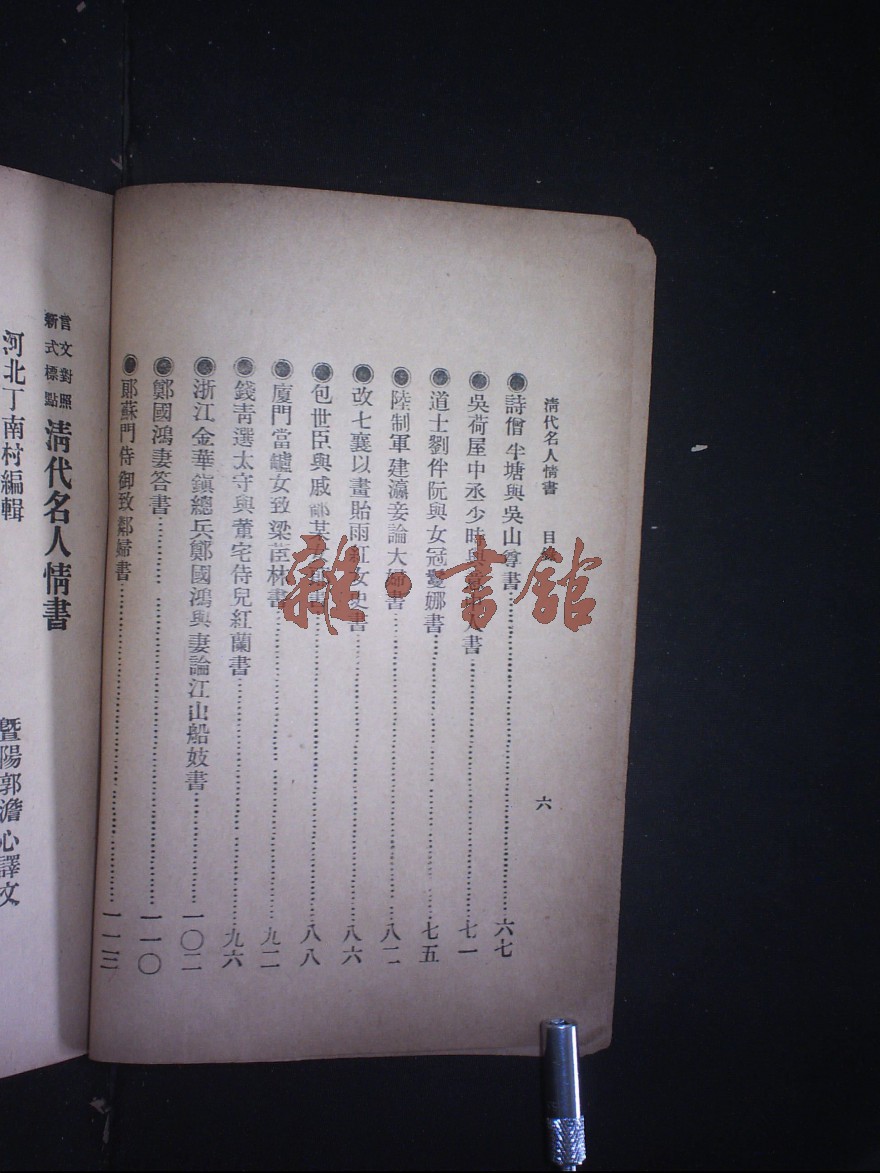 清代名人情書 目 六
●詩僧半塘與吳山尊書 六七
●吳荷屋中丞少時與 書 七一
●道士劉件阮與女冠愛娜書 七五
●陸制軍建瀛妾論大婦書 八二
●改七襄以畫貽雨紅女史書 八六
●包世臣與戚 某 八八
●廈門當罏女致梁茝林書 九二
●錢青選太守與董宅侍兒紅蘭書 九六
●浙江金華鎮總兵鄭國鴻與妻論江山船妓書 一〇二
●鄭國鴻妻答書 一一〇
●鄖蘇門侍御致鄰婦書 一一三
言文對照
新式標點
清代名人情書
河北丁南村編輯
暨陽郭澹心譯文
雜·書館